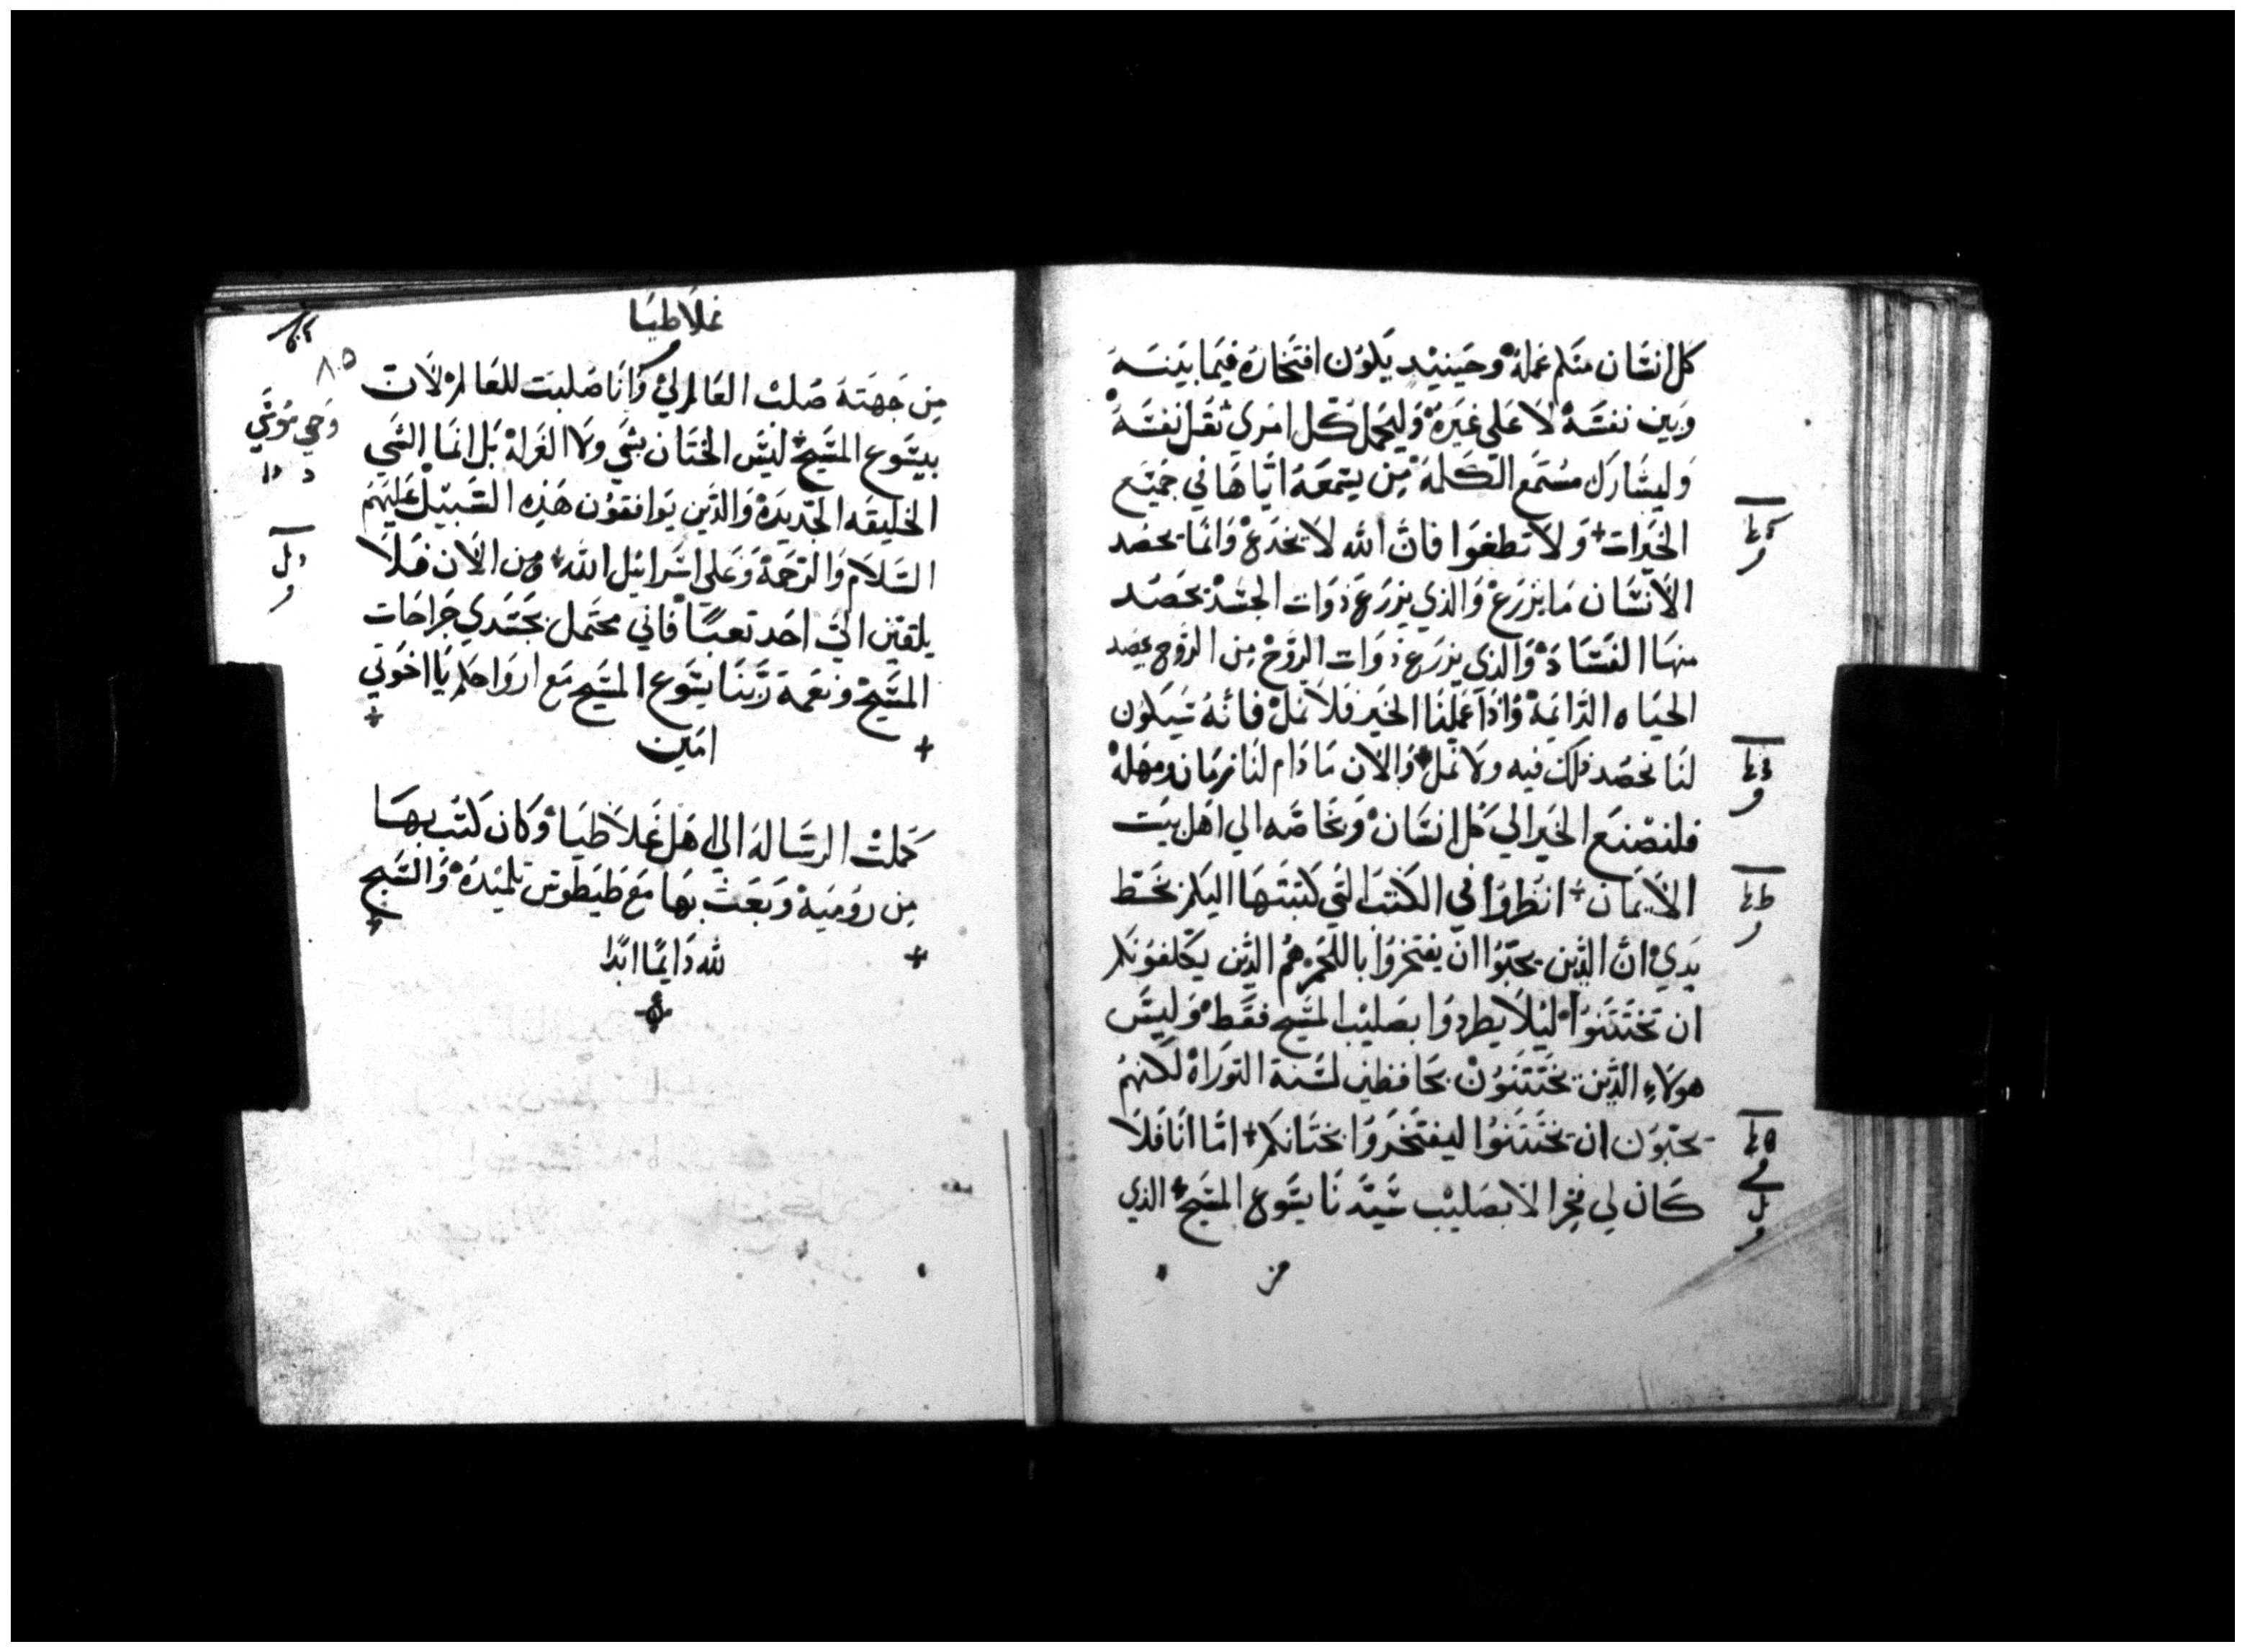 كل انسان منكم عمله وحينيد يكون افتخاره فيما بينه
وبين نفسه لا على غيره وليحمل كل امرى ثقل نفسه
وليشارك مستمع الكلمة من يسمعه اياها في جميع
الخيرات ولا تطغوا فان الله لا يخدع وانما يحصد
الانسان ما يزرع والذي يزرع ذوات الجسد يحصد
منها الفساد والذي يزرع ذوات الروح من الروح يحصد
الحياه الدايمة واذا عملنا الخير فلا نمل فانه سيكون
لنا نحصد ذلك فيه ولا نمل والان ما دام لنا زمان ومهلة
فلنصنع الخير الي كل انسان وبخاصه الي اهل بيت
الايمان انظروا في الكتب التي كتبتها اليكم بخط
يدي ان الذين يحبوا ان يفتخروا باللحم هم الذين يكلفونكم
ان تختتنوا ليلا يطردوا بصليب المسيح فقط وليس
هولاء الذين يختتنون بحافظين لسنة التوراة لكنهم
يحبون ان تختتنوا ليفتخروا بختانكم اما انا فلا
كان لي فخرا الا بصليب سيدنا يسوع المسيح الذي
من
غلاطيا
٨٠٥
من جهته صلب العالم لي وانا صلبت للعالم لان
بيسوع المسيح ليس الختان بشي ولا الغرلة بل انما الشي
الخليقه الجديدة والذين يوافقون هذه السبيل عليهم
السلام والرحمة وعلي اسرائيل الله ومن الان فلا
يلقين الي احد تعبا فاني محتمل بجسدي جراحات
المسيح ونعمة ربنا يسوع المسيح مع ارواحكم يا اخوتي
امين
كملت الرسالة الي اهل غلاطيا وكان كتب بها
من رومية وبعث بها مع طيطوس تلميذه والسبح
لله دايما ابدا